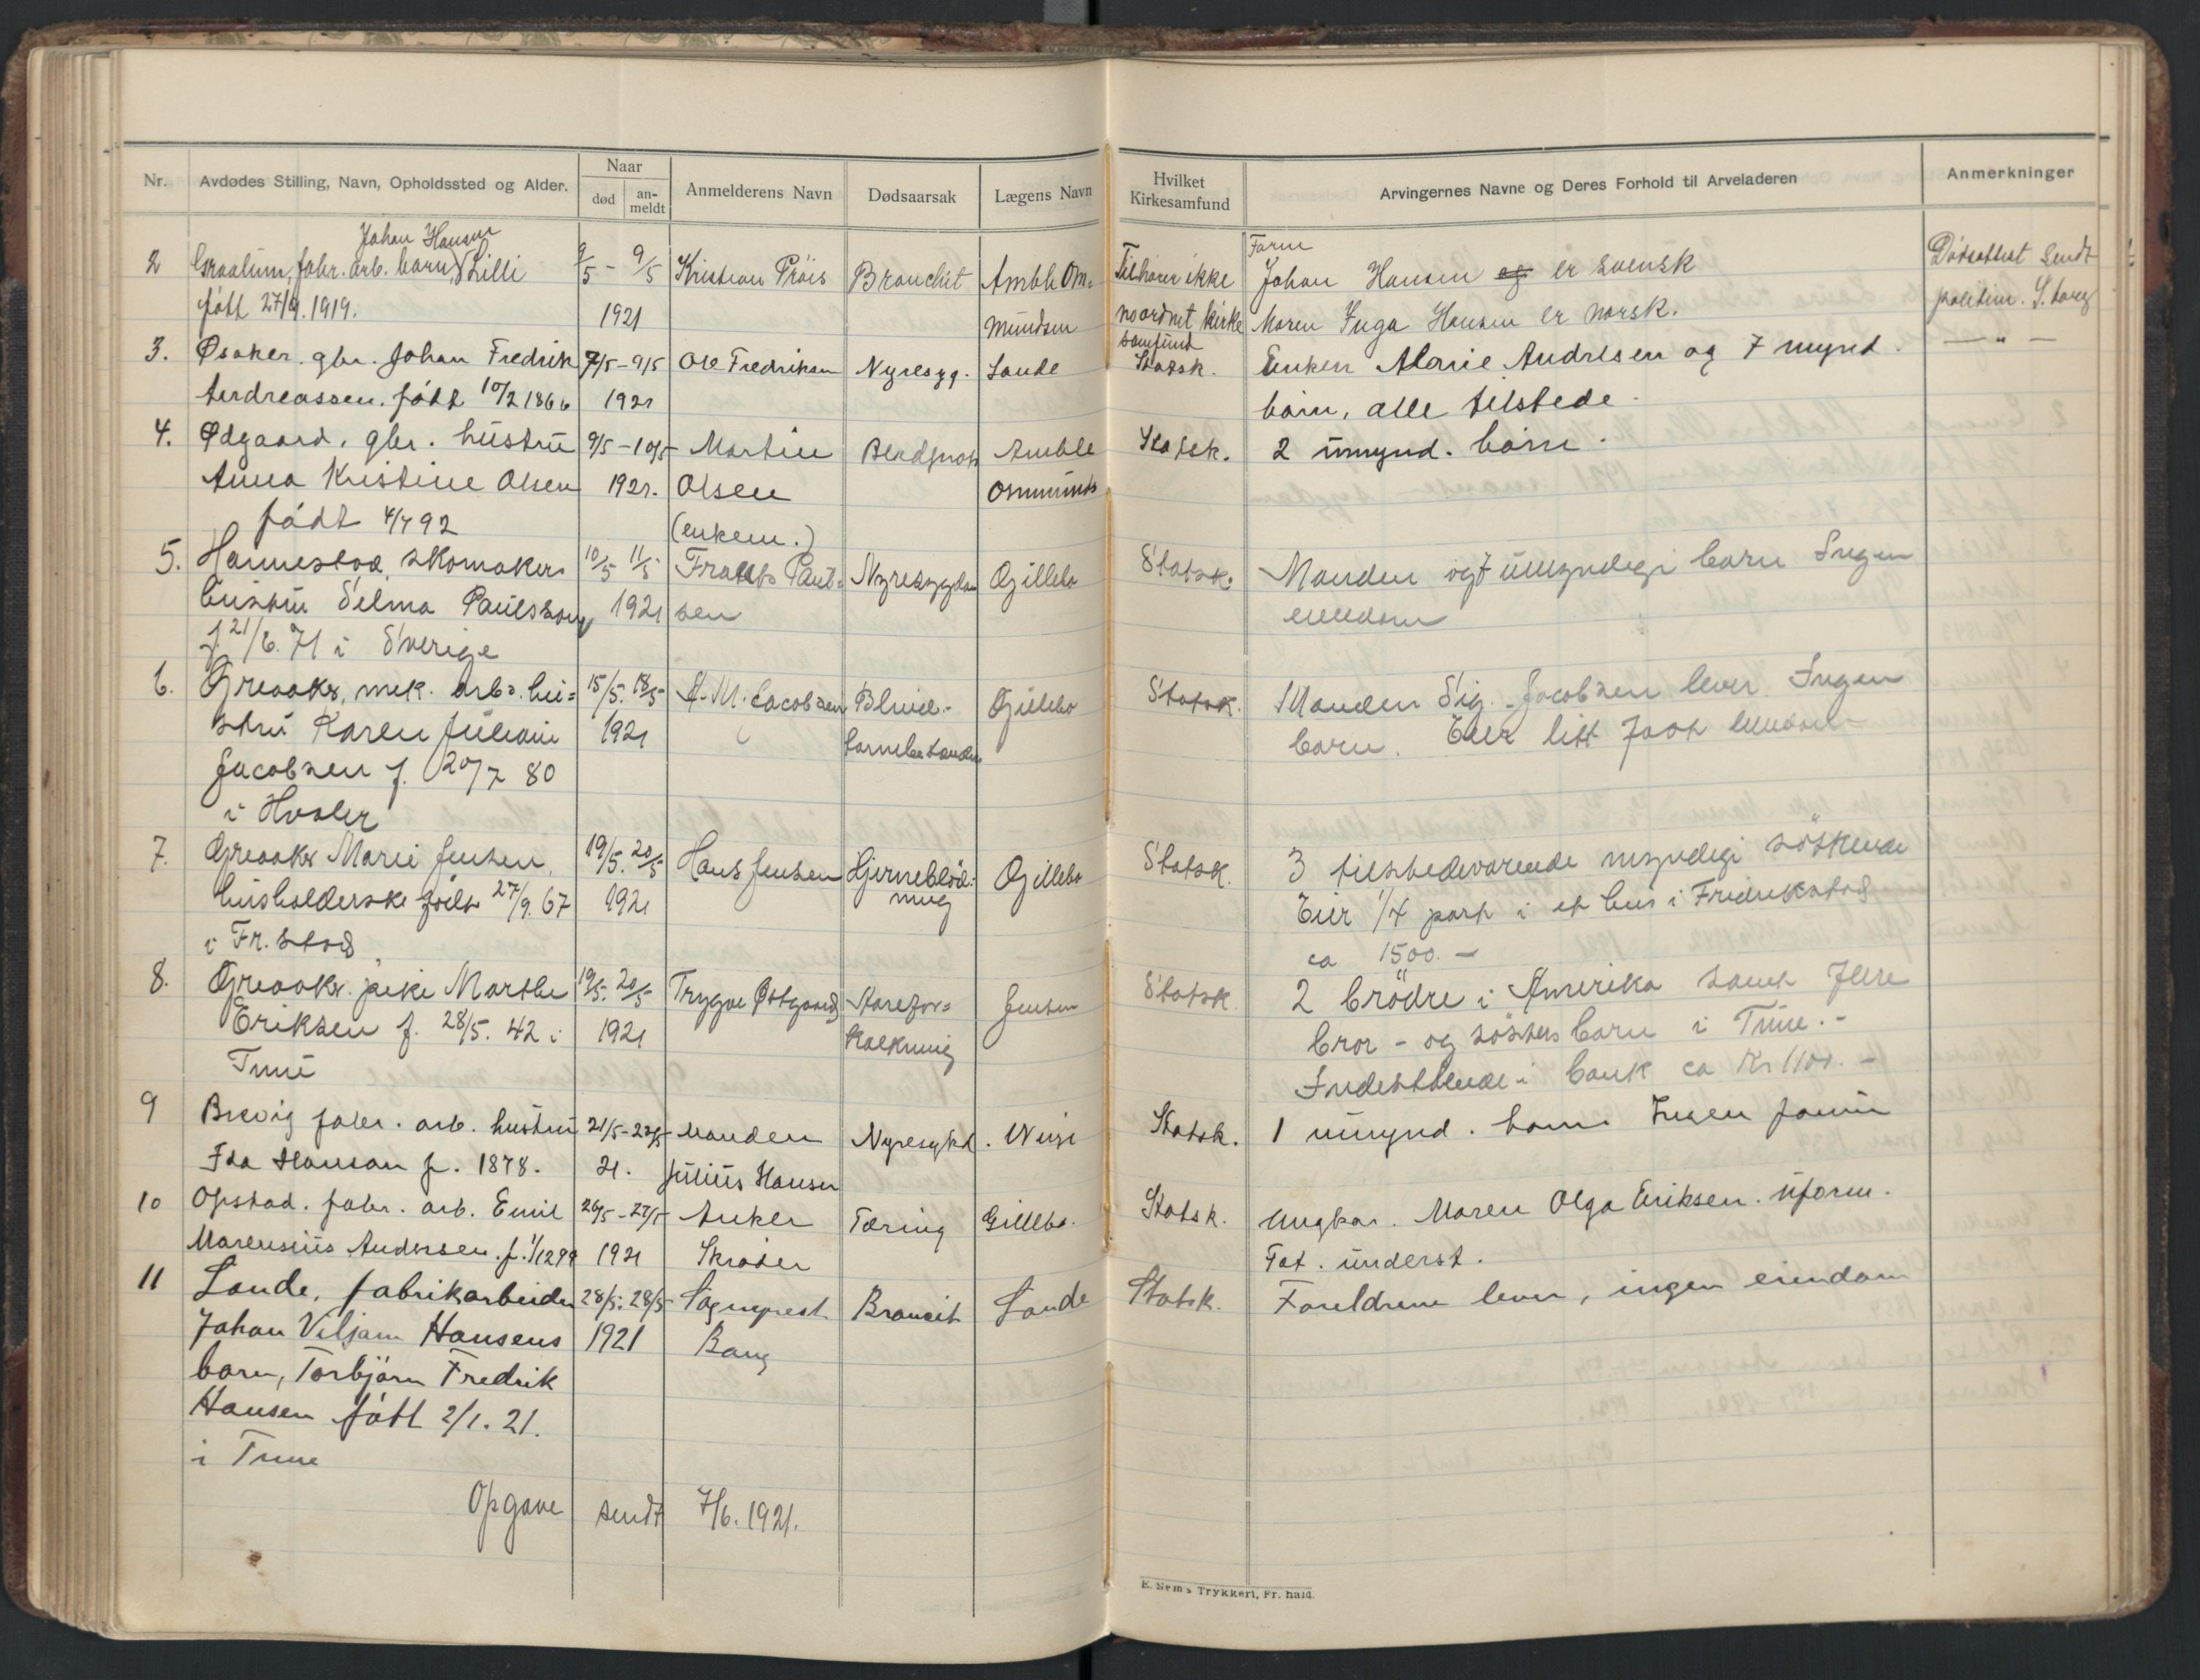 Nr.
Avdødes Stilling, Navn, Opholdssted og Alder.
Naar
død
an-
meldt
Anmelderens Navn
Dødsaarsak
Lægens Navn
Hvilket
Kirkesamfund
Arvingernes Navne og Deres Forhold til Arveladeren
Anmerkninger
Johan Hansen
2 Graalum, fabr. arb. barn, Lilli 9/5 - 9/5 Kristian Bronchit Amble Om=
født 27/9. 1919. 1921 mundsen
Tilhører ikke Johan Hansen og er svensk Dødsattest sendt
noordnet kirke Maren Inga Hansen er norsk.
samfund
3. Øsaker. gbr. Johan Fredrik 7/5-9/5 Ole Fredriksen Nyresyg. Sande Statsk. Enken Marie Andresen og 7 mynd. — " —
Andreassen. født 10/2 1866 1921 barn, alle tilstede.
4. Ødgaard. gbr. hustru 9/5-10/5 Martin Amble Statsk. 2 umynd. barn.
Anna Kristine Olsen 1921. Olsen Ommunds
født 4/7 92 (enkem.)
5. Hannestad, skomakers 10/5 11/5 Frants Paul= Nyresygdom Gillebo Statsk. Manden og 7 umyndige barn Ingen
hustru Selma Paulsson 1921 sen eiendom
f. 21/6. 71 i Sverige
6. Greaaker, mek. arb. hu= 15/5. 18/5 A. M. Jacobsen Gillebo Statsk. Manden Sig. Jacobsen lever. Ingen
stru Karen Juliane 1921 barn. Eier litt fast eiendom
Jacobsen f. 20/7 80
i Hvaler
7. Greaaker Marie Jensen, 19/5. 20/5 Hans Jensen Hjerneblød- Gillebo Statsk. 3 tilstedeværende myndige søskende
husholderske født 27/9. 67 1921 ning Eier 1/4 part i et hus i Fredrikstad
i Fr.stad ca 1500.—
8. Greaaker. pike Marthe 19/5. 20/5 Trygve Østgaard Aarefor= Jensen Statsk. 2 brødre i Amerika samt flere
Eriksen f. 28/5. 42 i 1921 kalkning bror - og søsters barn i Tune.-
Tune Indestående i bank ca Kr 1100.—
9 Brevig fabr. arb. hustru 21/5-22/5 Manden Nyresykd. Statsk. 1 umynd. barn. Ingen
Ida Hansen f. 1878. 21. Julius Hansen
10 Opstad. fabr. arb. Emil 26/5-27/5 Anker Tæring Gillebo. Statsk. Ungkar. Maren Olga Eriksen. uform.
Marensius Andersen. f. 1/12 99 1921 Skrøder Fat. underst.
11 Sande, fabrikarbeider 28/5. 28/5 Sogneprest Broncit Sande Statsk. Foreldrene lever, ingen eiendom
Johan Viljam Hansens 1921 Bang
barn, Torbjørn Fredrik
Hansen født 2/1. 21.
i Tune
Opgave sendt 7/6. 1921.
E. Sem's Trykkeri, Fr. hald.